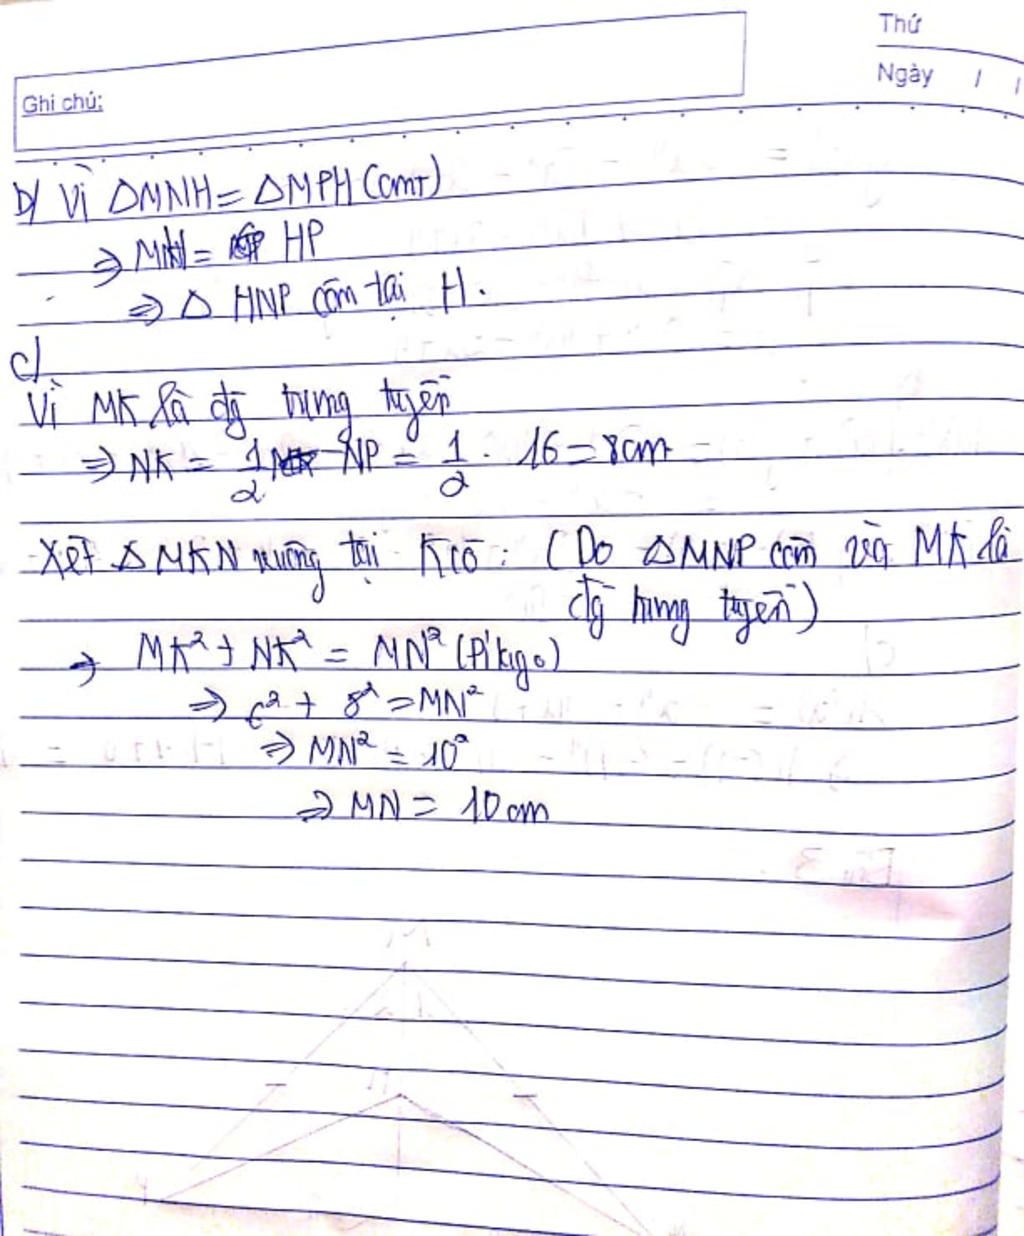 Thứ
Ngày / /
Ghi chú:
b/ Vì △MNH = △MPH (cmt)
⇒ = HP
⇒ △ HNP cân tại H.
c/
Vì MK là đg trung tuyến
⇒ NK = 1/2 NP = 1/2 . 16 = 8cm
Xét △MKN vuông tại K có : (Do △MNP cân và MK là
đg trung tuyến)
⇒ MK² + NK² = MN² (Pitago)
⇒ 6² + 8² = MN²
⇒ MN² = 10²
⇒ MN = 10cm